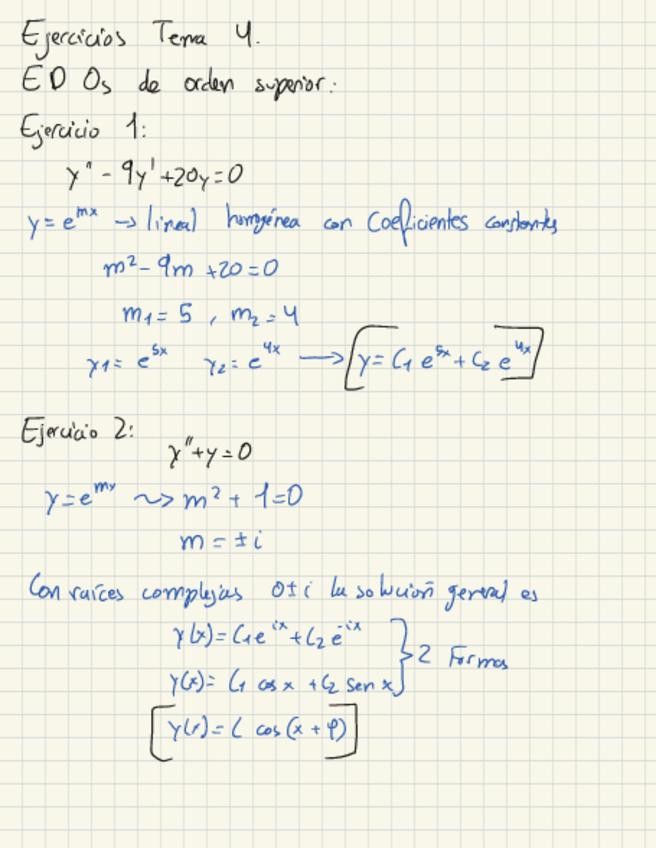 Ejercicios Tema 4.
EDOs de orden superior:
Ejercicio 1:
y'' - 9y' + 20y = 0
y = e^{mx} → lineal homogénea con Coeficientes constantes
m² - 9m + 20 = 0
m₁ = 5 , m₂ = 4
y₁ = e^{5x} y₂ = e^{4x} → [y = C₁ e^{5x} + C₂ e^{4x}]
Ejercicio 2:
y'' + y = 0
y = e^{mx} ⇝ m² + 1 = 0
m = ± i
Con raíces complejas 0 ± i la solución general es
y(x) = C₁ e^{ix} + C₂ e^{-ix}
y(x) = C₁ cos x + C₂ sen x } 2 Formas
[y(x) = C cos(x + φ)]